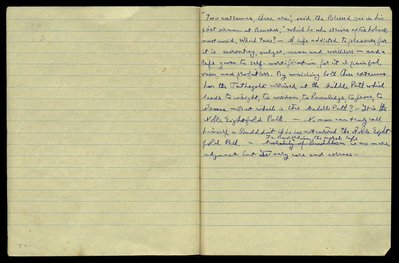 'Two extremes, there are,' said the Blessed one in his
first sermon at Benares, 'which he who strives after holiness
must avoid. Which two? — A life addicted to pleasure for
it is enervating, vulgar, mean and worthless — and a
life given to self-mortification for it is painful,
vain and profitless. By avoiding both these extremes
has the Tathagata arrived at the Middle Path which
leads to insight, to wisdom, to knowledge, to peace, to
Nirvana. — But what is this Middle Path? — It is the
Noble Eightfold Path. — No man can truly call
himself a Buddhist if he has not entered the Noble Eight
fold Path. —
In Buddhism the moral life
is no mere
adjunct but its very core and essence —